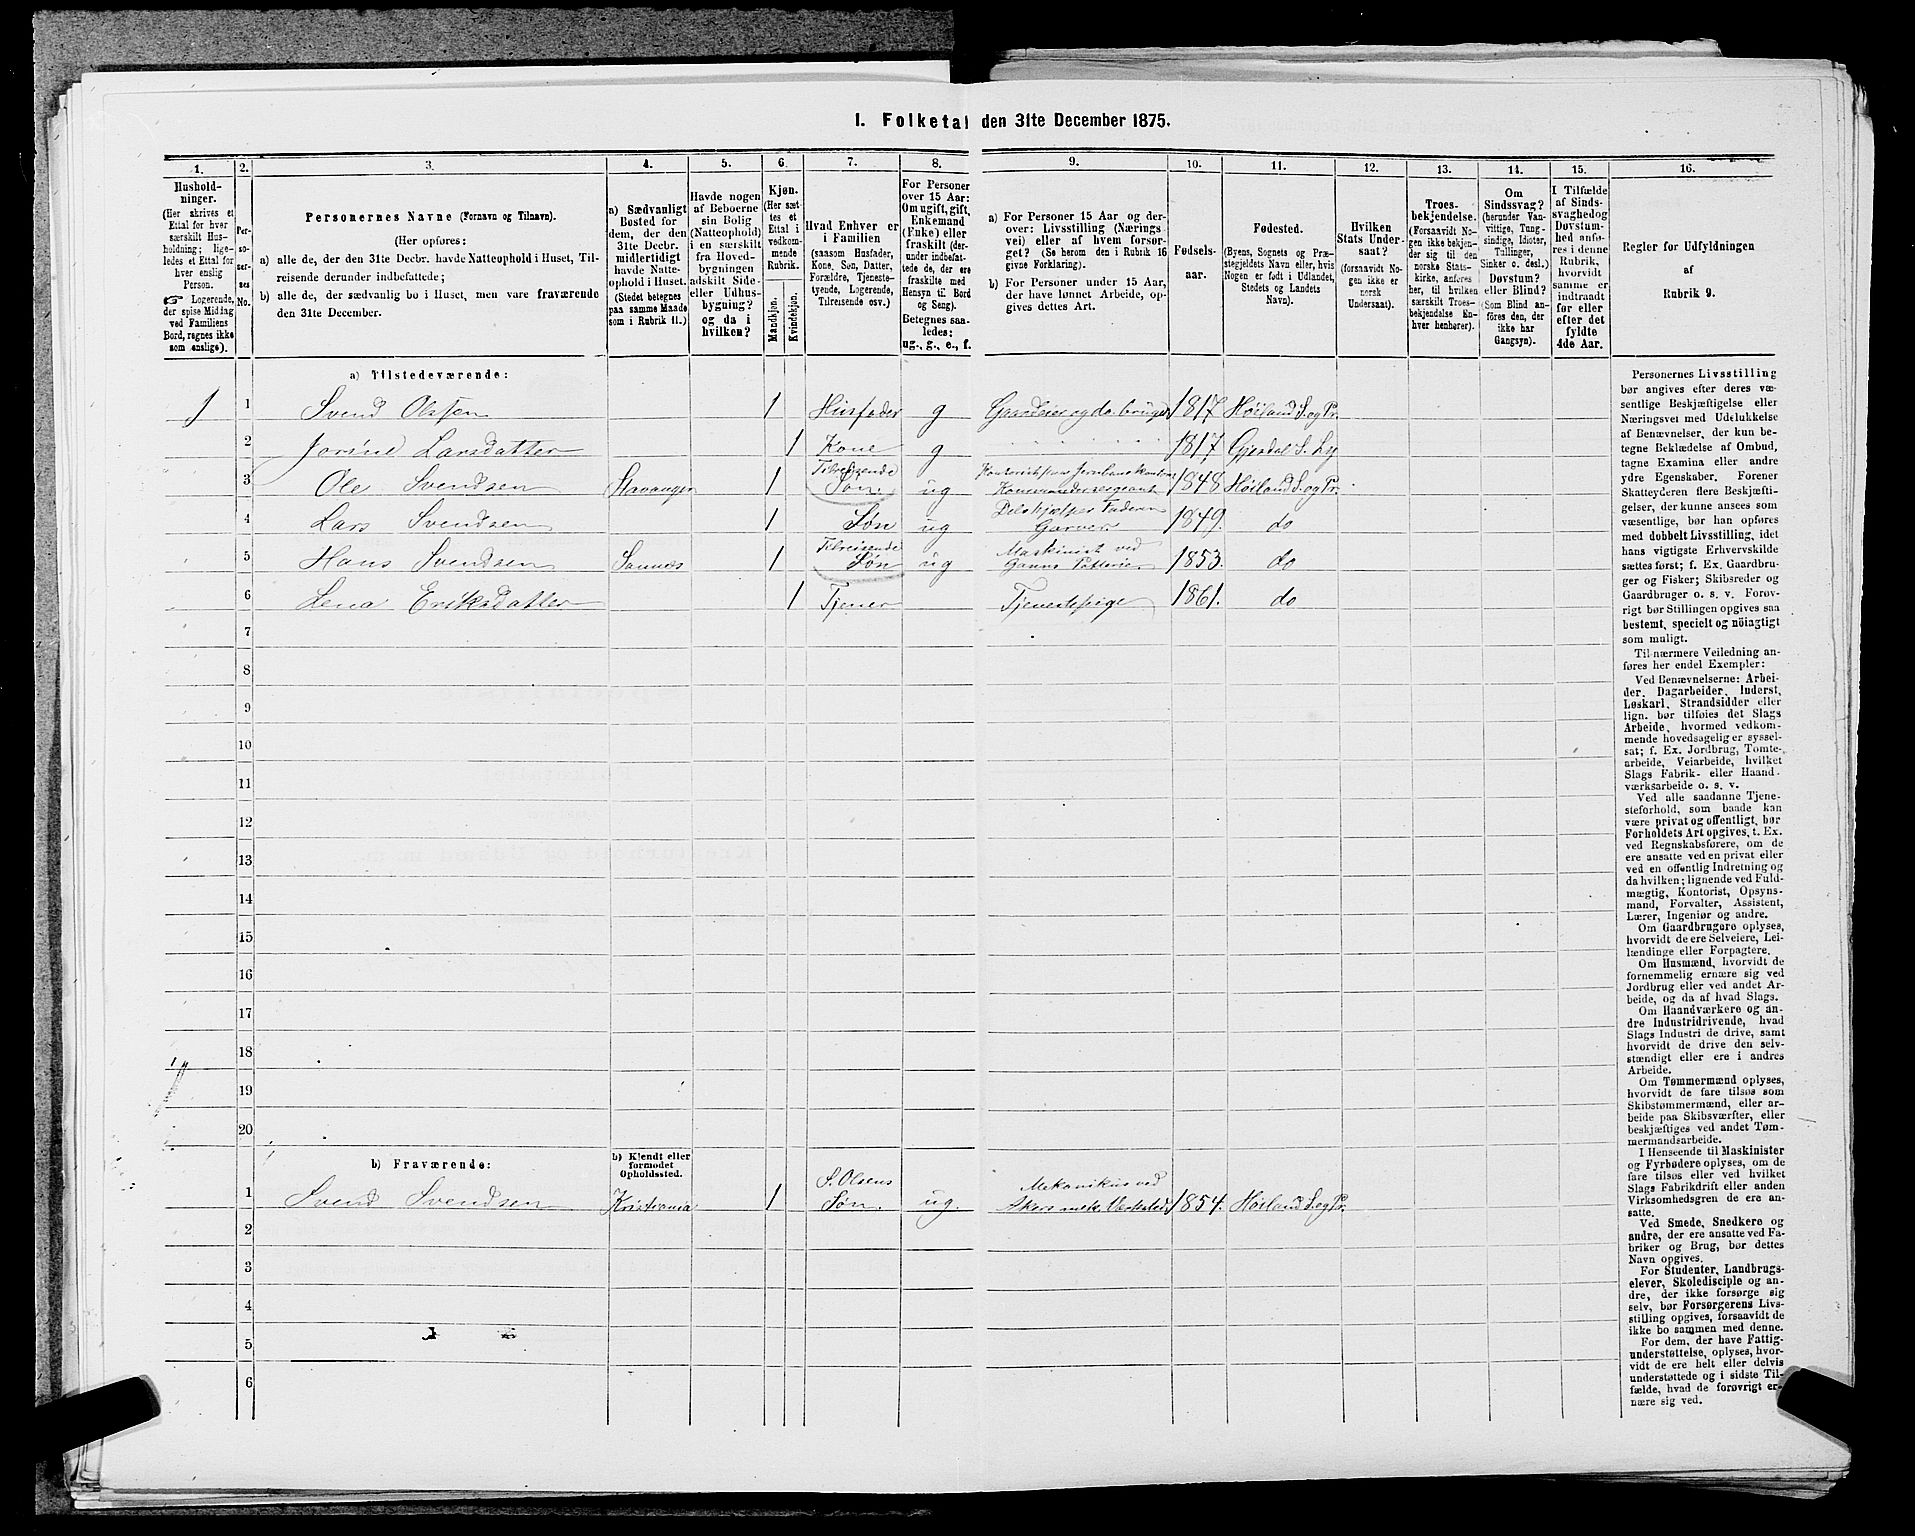 I. Folketal den 31te December 1875.
1. 2. 3. 4. 5. 6. 7. 8. 9. 10. 11. 12. 13. 14. 15. 16.
Hushold-
ninger.
(Her skrives et
Ettal for hver
særskilt Hus-
holdning; lige-
ledes et Ettal for
hver enslig
Person.
☞ Logerende,
der spise Middag
ved Familiens
Bord, regnes ikke
som enslige).
Per-
so-
ner-
nes
No.
Personernes Navne (Fornavn og Tilnavn).
(Her opføres:
a) alle de, der den 31te Decbr. havde Natteophold i Huset, Til-
reisende derunder indbefattede;
b) alle de, der sædvanlig bo i Huset, men vare fraværende
den 31te December.
a) Sædvanligt
Bosted for
dem, der den
31te Decbr.
midlertidigt
havde Natte-
ophold i Huset.
(Stedet betegnes
paa samme Maade
som i Rubrik 11.)
Havde nogen
af Beboerne
sin Bolig
(Natteophold)
i en særskilt
fra Hoved-
bygningen
adskilt Side-
eller Udhus-
bygning?
og da i
hvilken?
Kjøn.
(Her sæt-
tes et
Ettal i
vedkom-
mende
Rubrik.
Mandkjøn.
Kvindekjøn.
Hvad Enhver er
i Familien
(saasom Husfader,
Kone, Søn, Datter,
Forældre, Tjeneste-
tyende, Logerende,
Tilreisende osv.)
For Personer
over 15 Aar:
Om ugift, gift,
Enkemand
(Enke) eller
fraskilt (der-
under indbefat-
tede de, der ere
fraskilte med
Hensyn til Bord
og Seng).
Betegnes saa-
ledes:
ug., g., e., f.
a) For Personer 15 Aar og der-
over: Livsstilling (Nærings
vei) eller af hvem forsør-
get? (Se herom den i Rubrik 16
givne Forklaring).
b) For Personer under 15 Aar,
der have lønnet Arbeide, op-
gives dettes Art.
Fødsels-
aar.
Fødested.
(Byens, Sognets og Præ-
stegjeldets Navn eller, hvis
Nogen er født i Udlandet,
Stedets og Landets
Navn).
Hvilken
Stats Under-
saat?
(forsaavidt No-
gen ikke er
norsk
Undersaat).
Troes-
bekjendelse.
(Forsaavidt No-
gen ikke bekjen-
der sig til den
norske Stats-
kirke, anføres
her, til hvilken
særskilt Troes-
bekjendelse En-
hver henhører).
Om
Sindssvag?
(herunder Van-
vittige, Tung-
sindige, Idioter,
Tullinger,
Sinker o. desl.)
Døvstum?
eller Blind?
(Som Blind an-
føres den, der
ikke har
Gangsyn).
I Tilfælde
af Sinds-
svaghed og
Døvstum-
hed anfø-
res i denne
Rubrik,
hvorvidt
samme er
indtraadt
før eller
efter det
fyldte
4de Aar.
Regler for Udfyldningen
af
Rubrik 9.
a) Tilstedeværende:
1 1 Svend Olssen 1 Husfader g Gaardeier og do. bruger 1817 Höiland S. og Pr.
2 Jorine Larsdatter 1 Kone g 1817 Gjesdal S. Ly
3 Ole Svendsen Stavanger 1 Tilreisende Søn. ug Kommandersergeant 1848 Höiland S. og Pr.
4 Lars Svendsen 1 Søn ug Garver 1849. do
5 Hans Svendsen Sannæs 1 Tilreisende Søn ug Maskinist ved Ganns Potteri 1853. do
6 Lena Eriksdatter 1 Tjener Tjenestepige 1861. do
7
8
9
10
11
12
13
14
15
16
17
18
19
20
b) Fraværende:
b) Kjendt eller
formodet
Opholdssted.
1 Svend Svendsen Kristiania 1 S. Olsens Søn. ug. Mekanikus ved Akers mek. Verksted. 1854. Höiland S. og Pr.
2
3
4
5
6
Personernes Livsstilling
bør angives efter deres væ-
sentlige Beskjæftigelse eller
Næringsvei med Udelukkelse
af Benævnelser, der kun be-
tegne Beklædelse af Ombud,
tagne Examina eller andre
ydre Egenskaber. Forener
Skatteyderen flere Beskjæfti-
gelser, der kunne ansees som
væsentlige, bør han opføres
med dobbelt Livsstilling, idet
hans vigtigste Erhvervskilde
sættes først; f. Ex. Gaardbru-
ger og Fisker; Skibsreder og
Gaardbruger o. s. v. Forøv-
rigt bør Stillingen opgives saa
bestemt, specielt og nöiagtigt
som muligt.
Til nærmere Veiledning an-
føres her endel Exempler:
Ved Benævnelserne: Arbei-
der, Dagarbeider, Inderst,
Løskarl, Strandsidder eller
lign. bør tilføies det Slags
Arbeide, hvormed vedkom-
mende hovedsagelig er syssel-
sat; f. Ex. Jordbrug, Tomte-
arbeide, Veiarbeide, hvilket
Slags Fabrik- eller Haand-
værksarbeide o. s. v.
Ved alle saadanne Tjene-
steforhold, som baade kan
være privat og offentligt, bør
Forholdets Art opgives, t. Ex.
ved Regnskabsførere, om de
ere ansatte ved en privat eller
ved en offentlig Indretning og
da hvilken; lignende ved Fuld-
mægtig, Kontorist, Opsyns-
mand, Forvalter, Assistent,
Lærer, Ingeniør og andre.
Om Gaardbrugere oplyses,
hvorvidt de ere Selveiere, Lei-
lændinge eller Forpagtere.
Om Husmænd, hvorvidt de
fornemmelig ernære sig ved
Jordbrug eller ved andet Ar-
beide, og da af hvad Slags.
Om Haandværkere og an-
dre Industridrivende, hvad
Slags Industri de drive, samt
hvorvidt de drive den selv-
stændigt eller ere i andres
Arbeide.
Om Tømmermænd oplyses,
hvorvidt de fare tilsøs som
Skibstømmermænd, eller ar-
beide paa Skibsværfter, eller
beskjæftiges ved andet Tøm-
mermandsarbeide.
I Henseende til Maskinister
og Fyrbødere oplyses, om de
fare tilsøs eller ved hvilket
Slags Fabrikdrift eller anden
Virksomhedsgren de ere an-
satte.
Ved Smede, Snedkere og
andre, der ere ansatte ved Fa-
briker og Brug, bør dettes
Navn opgives.
For Studenter, Landbrugs-
elever, Skoledisciple og an-
dre, der ikke forsørge sig
selv, bør Forsørgerens Livs-
stilling opgives, forsaavidt de
ikke bo sammen med denne.
For dem, der have Fattig-
understøttelse, oplyses, hvor-
vidt de ere helt eller delvis
understøttede og i sidste Til-
fælde, hvad de forøvrigt er-
nære sig ved.